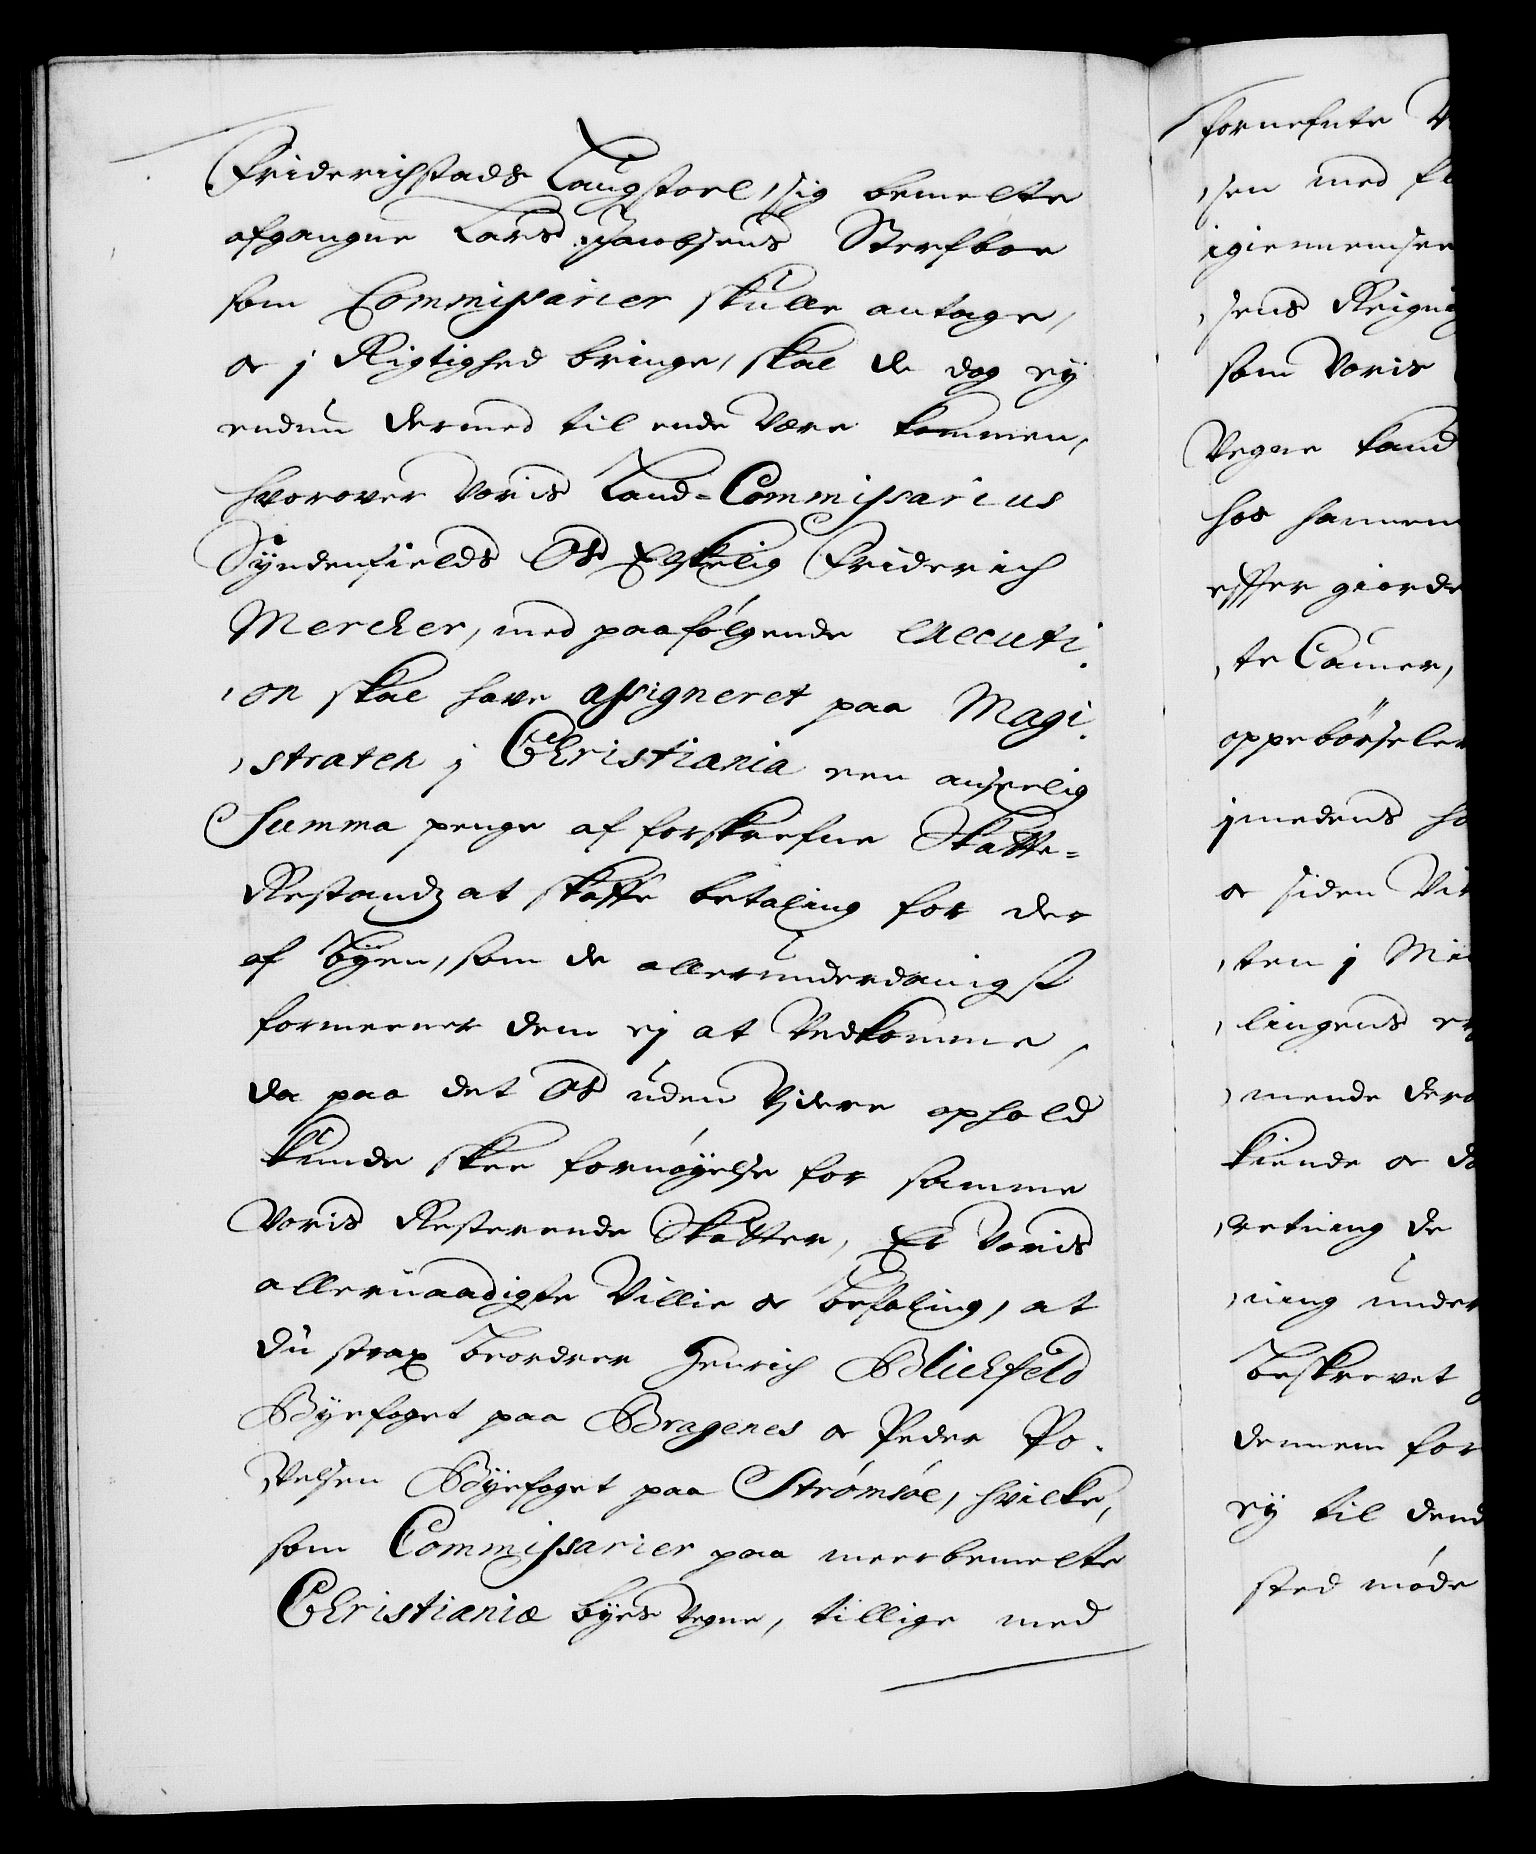 Friderichstads Laugstoel, sig bemelte
afgangne Lars Jacobsens Sterfboe
som Commissarier skulle antage,
oc j Rigtighed bringe, skal de dog ey
endnu dermed til ende være kommen,
hvorover Voris Land-Commissarius
Syndenfields Os Elskelig Friderich
Mercker, med paafølgende executi,
,on skal have assigneret paa Magi,
,straten j Christiania een anseelig
Summa penge af forskrefne Skatte-
Restandz at skaffe betaling for der
af byen, som de allerunderdanigst
formeener dem ej at Vedkomme,
da paa det Os uden Vjdere ophold
kunde skee fornøyelse for samme
Voris Resterende Skatter, Er Voris
allernaadigste Villie oc befaling, at
du strax beordrer Henrich Blichfeld
Byefoget paa Bragenes oc Peder Po-
velsen Byefoget paa Strømsøe, hvilke,
som Commissarier paa meerbemelte
Christianiæ byes Vegne, tillige med
fornefnte
,sen med
igiennemsee
,sens Reigni
som Voris
Vegne
hos hannem
effter giorde
,te Camer,
oppebørseler
jmedens
oc siden
,ten j
,lingens
,mende
kiende oc
,retning de
,ning under
beskrevet
dennem for
ey til dend
sted møde